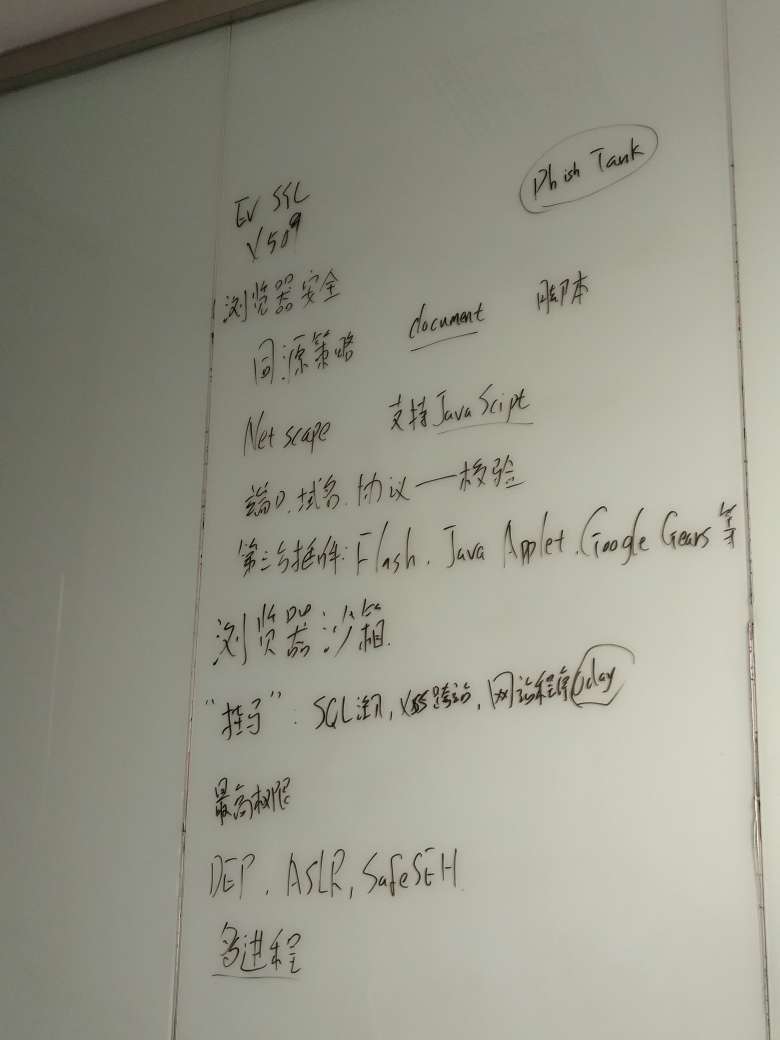 Phish Tank
EV SSL
X509
浏览器安全
同源策略 document 脚本
Netscape 支持JavaScipt
端口、域名、协议——校验
第三方插件: Flash、Java Applet、Google Gears等
浏览器沙箱.
"挂马": SQL注入, XSS跨站, 网站程序0day
最高权限
DEP、ASLR, SafeSEH.
多进程